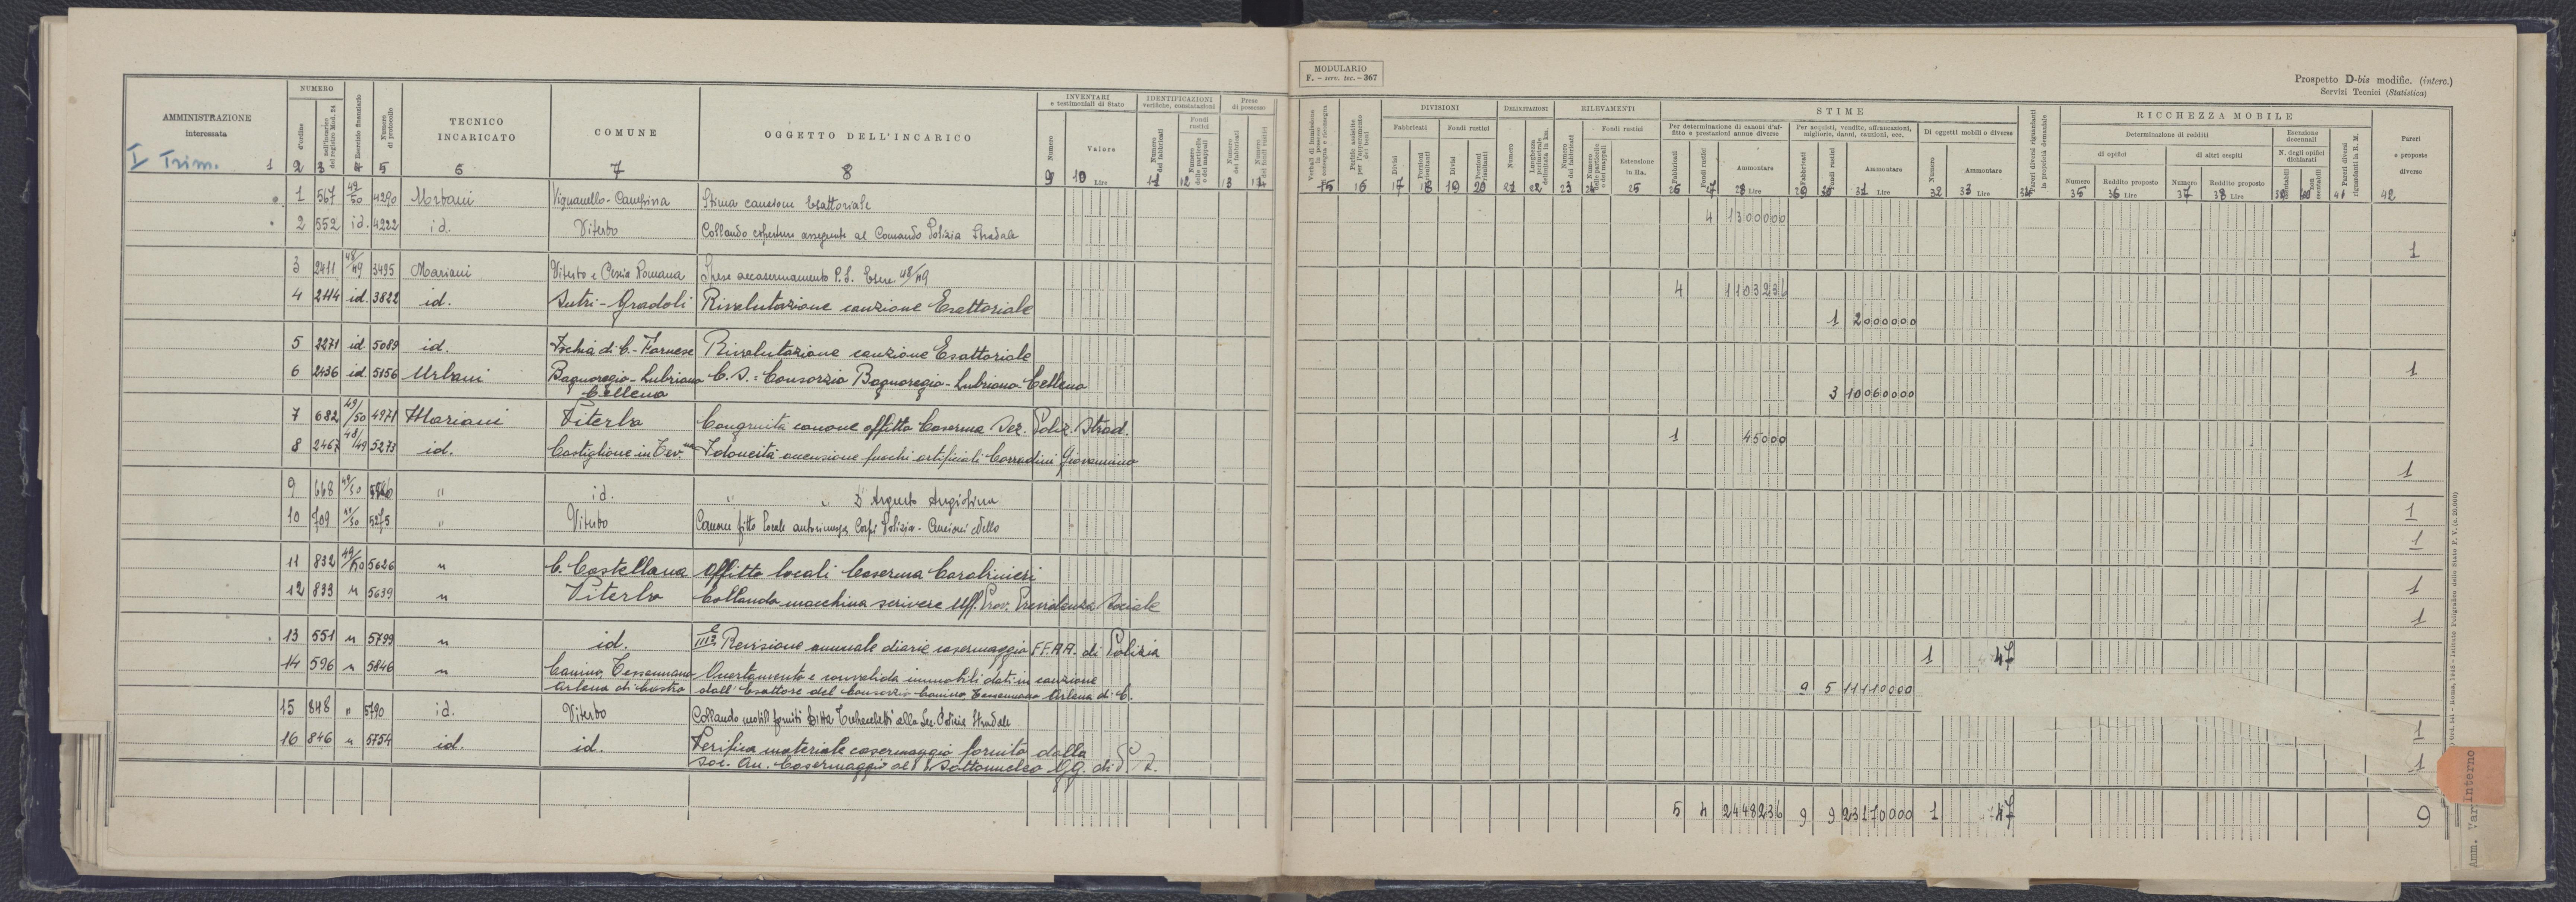 MODULARIO
F. - serv. tec. - 367
Prospetto D-bis modific. (interc.)
Servizi Tecnici (Statistica)
AMMINISTRAZIONE
interessata
I Trim.
NUMERO
d'ordine
dell'incarico del registro Mod. 24
Esercizio finanziario
Numero di protocollo
TECNICO
INCARICATO
COMUNE
OGGETTO DELL'INCARICO
INVENTARI
e testimoniali di Stato
Numero
Valore
Lire
IDENTIFICAZIONI
verifiche, constatazioni
Numero dei fabbricati
Fondi rustici
Numero delle particelle o dei mappali
Prese di possesso
Numero dei fabbricati
Numero dei fondi rustici
1 2 3 4 5 6 7 8 9 10 11 12 13 14
1 567 49/50 4290 Urbani Vignanello-Canepina Stima cauzione Esattoriale
2 552 id. 4222 id. Viterbo Collaudo coperture assegnate al Comando Polizia Stradale
3 2411 48/49 3495 Mariani Viterbo e Spese accasermamento P.S. Eserc 48/49
4 2114 id. 3822 id. Sutri-Gradoli Rivalutazione cauzione Esattoriale
5 2271 id 5089 id. Ischia di C.-Farnese Rivalutazione cauzione Esattoriale
6 2436 id. 5156 Urbani Bagnoregio-Lubriano C.S.: Consorzio Bagnoregio-Lubriano-Celleno
Celleno
7 682 49/50 4971 Mariani Viterbo Congruità canone affitto Caserma Sez. Poliz. Strad.
8 2467 48/49 5273 id. Castiglione in Tev.na Idoneità accensione fuochi artificiali Corradini Giovannino
9 668 49/50 " id. " " D'Arguto Angiolina
10 709 49/50 5275 " Viterbo Canone fitto locale autorimessa Corpi Polizia -
11 832 49/50 5626 " C. Castellana Affitto locali Caserma Carabinieri
12 833 " 5639 " Viterbo Collaudo macchina scrivere Uff. Prov. Previdenza Sociale
13 551 " 5799 " id. Revisione annuale diarie casermaggio FF.AA. di Polizia
14 596 " 5846 " Canino, Tessennano Accertamento e convalida immobili dati in cauzione
Arlena di Castro dall'Esattore del Consorzio Canino Tessennano Arlena di C.
15 848 " 5790 id. Viterbo Collaudo mobili forniti Ditta alla Sez. Polizia Stradale
16 846 " 5754 id. id. Verifica materiale casermaggio fornito dalla
Soc. An. Casermaggio al Sottonucleo GG. di P.S.
Verbali di immissione in possesso consegna e riconsegna
Perizie assistite per l'appuramento dei beni
DIVISIONI
Fabbricati
Fondi rustici
Divisi
Porzioni risultanti
Divisi
Porzioni risultanti
DELIMITAZIONI
Numero
Lunghezza perimetrale delimitata in km.
RILEVAMENTI
Numero dei fabbricati
Fondi rustici
Numero delle particelle o dei mappali
Estensione
in Ha.
STIME
Per determinazione di canoni d'affitto e prestazioni annue diverse
Fabbricati
Fondi rustici
Ammontare
Lire
Per acquisti, vendite, affrancazioni, migliorie, danni, cauzioni, ecc.
Fabbricati
Fondi rustici
Ammontare
Lire
Di oggetti mobili o diverse
Numero
Ammontare
Lire
Pareri diversi riguardanti la proprietà demaniale
RICCHEZZA MOBILE
Determinazione di redditi
di opifici
Numero
Reddito proposto
Lire
di altri cespiti
Numero
Reddito proposto
Lire
Esenzione decennali
N. degli opifici dichiarati
esentabili
non esentabili
Pareri diversi riguardanti la R. M.
Pareri
e proposte
diverse
15 16 17 18 19 20 21 22 23 24 25 26 27 28 29 30 31 32 33 34 35 36 37 38 39 40 41 42
4 1300000
1
4 1103236
1 2000000
1
3 10060000
1 45000
1
1
1
1
1
1 47
9 5 11110000
1
1
5 4 2448236 9 9 23170000 1 47 9
Roma, 1948 - Istituto Poligrafico dello Stato P. V. (c. 20.000)
Amm. Var. Interno